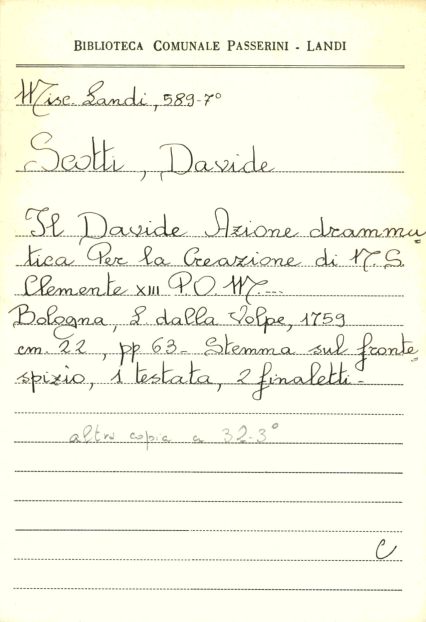 BIBLIOTECA COMUNALE PASSERINI - LANDI
Misc. Landi, 589-7°
Scotti, Davide
Il Davide Azione drammu=
tica Per la Creazione di N. S.
Clemente XIII P.O.M.---
Bologna, L. dalla Volpe, 1759
cm. 22, pp 63 - Stemma sul fronte=
spizio, 1 testata, 2 finaletti -
altra copia a 32-3°
C